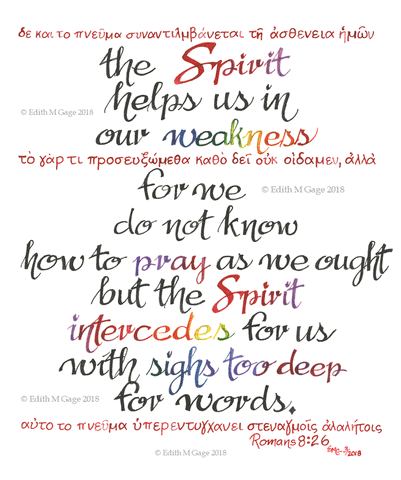 δε και το πνεῦμα συναντιλμβάνεται τῇ ἀσθενεια ἡμῶν
the Spirit
helps us in
© Edith M Gage 2018
our weakness
τὸ γὰρ τι προσευξώμεθα καθὸ δεῖ οὐκ οἰδαμεν, ἀλλὰ
for we
© Edith M Gage 2018
do not know
how to pray as we ought
but the Spirit
intercedes for us
with sighs too deep
© Edith M Gage 2018
for words.
αὐτο το πνεῦμα ὑπερεντυγχανει στεναγμοῖς ἀλαλήτοις
Romans 8:26
EMG 2018
© Edith M Gage 2018